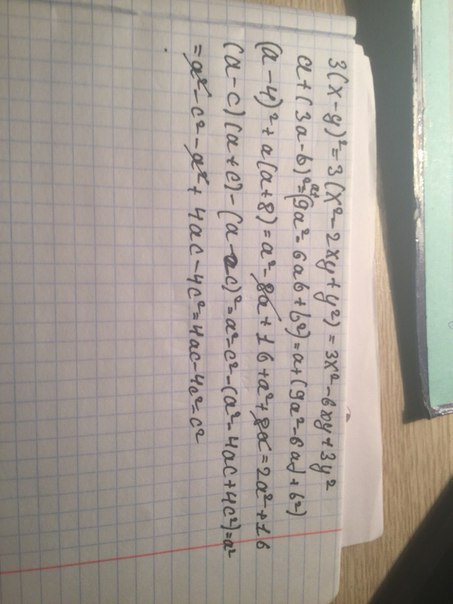 3(x-y)²=3(x²-2xy+y²)=3x²-6xy+3y²
a+(3a-b)²=a+(9a²-6ab+b²)=a+(9a²-6ab+b²)
(a-4)²+a(a+8)=a²-8a+16+a²+8a=2a²+16
(a-c)(a+c)-(a-2c)²=a²-c²-(a²-4ac+4c²)=a²
=a²-c²-a²+4ac-4c²=4ac-4c²=c²